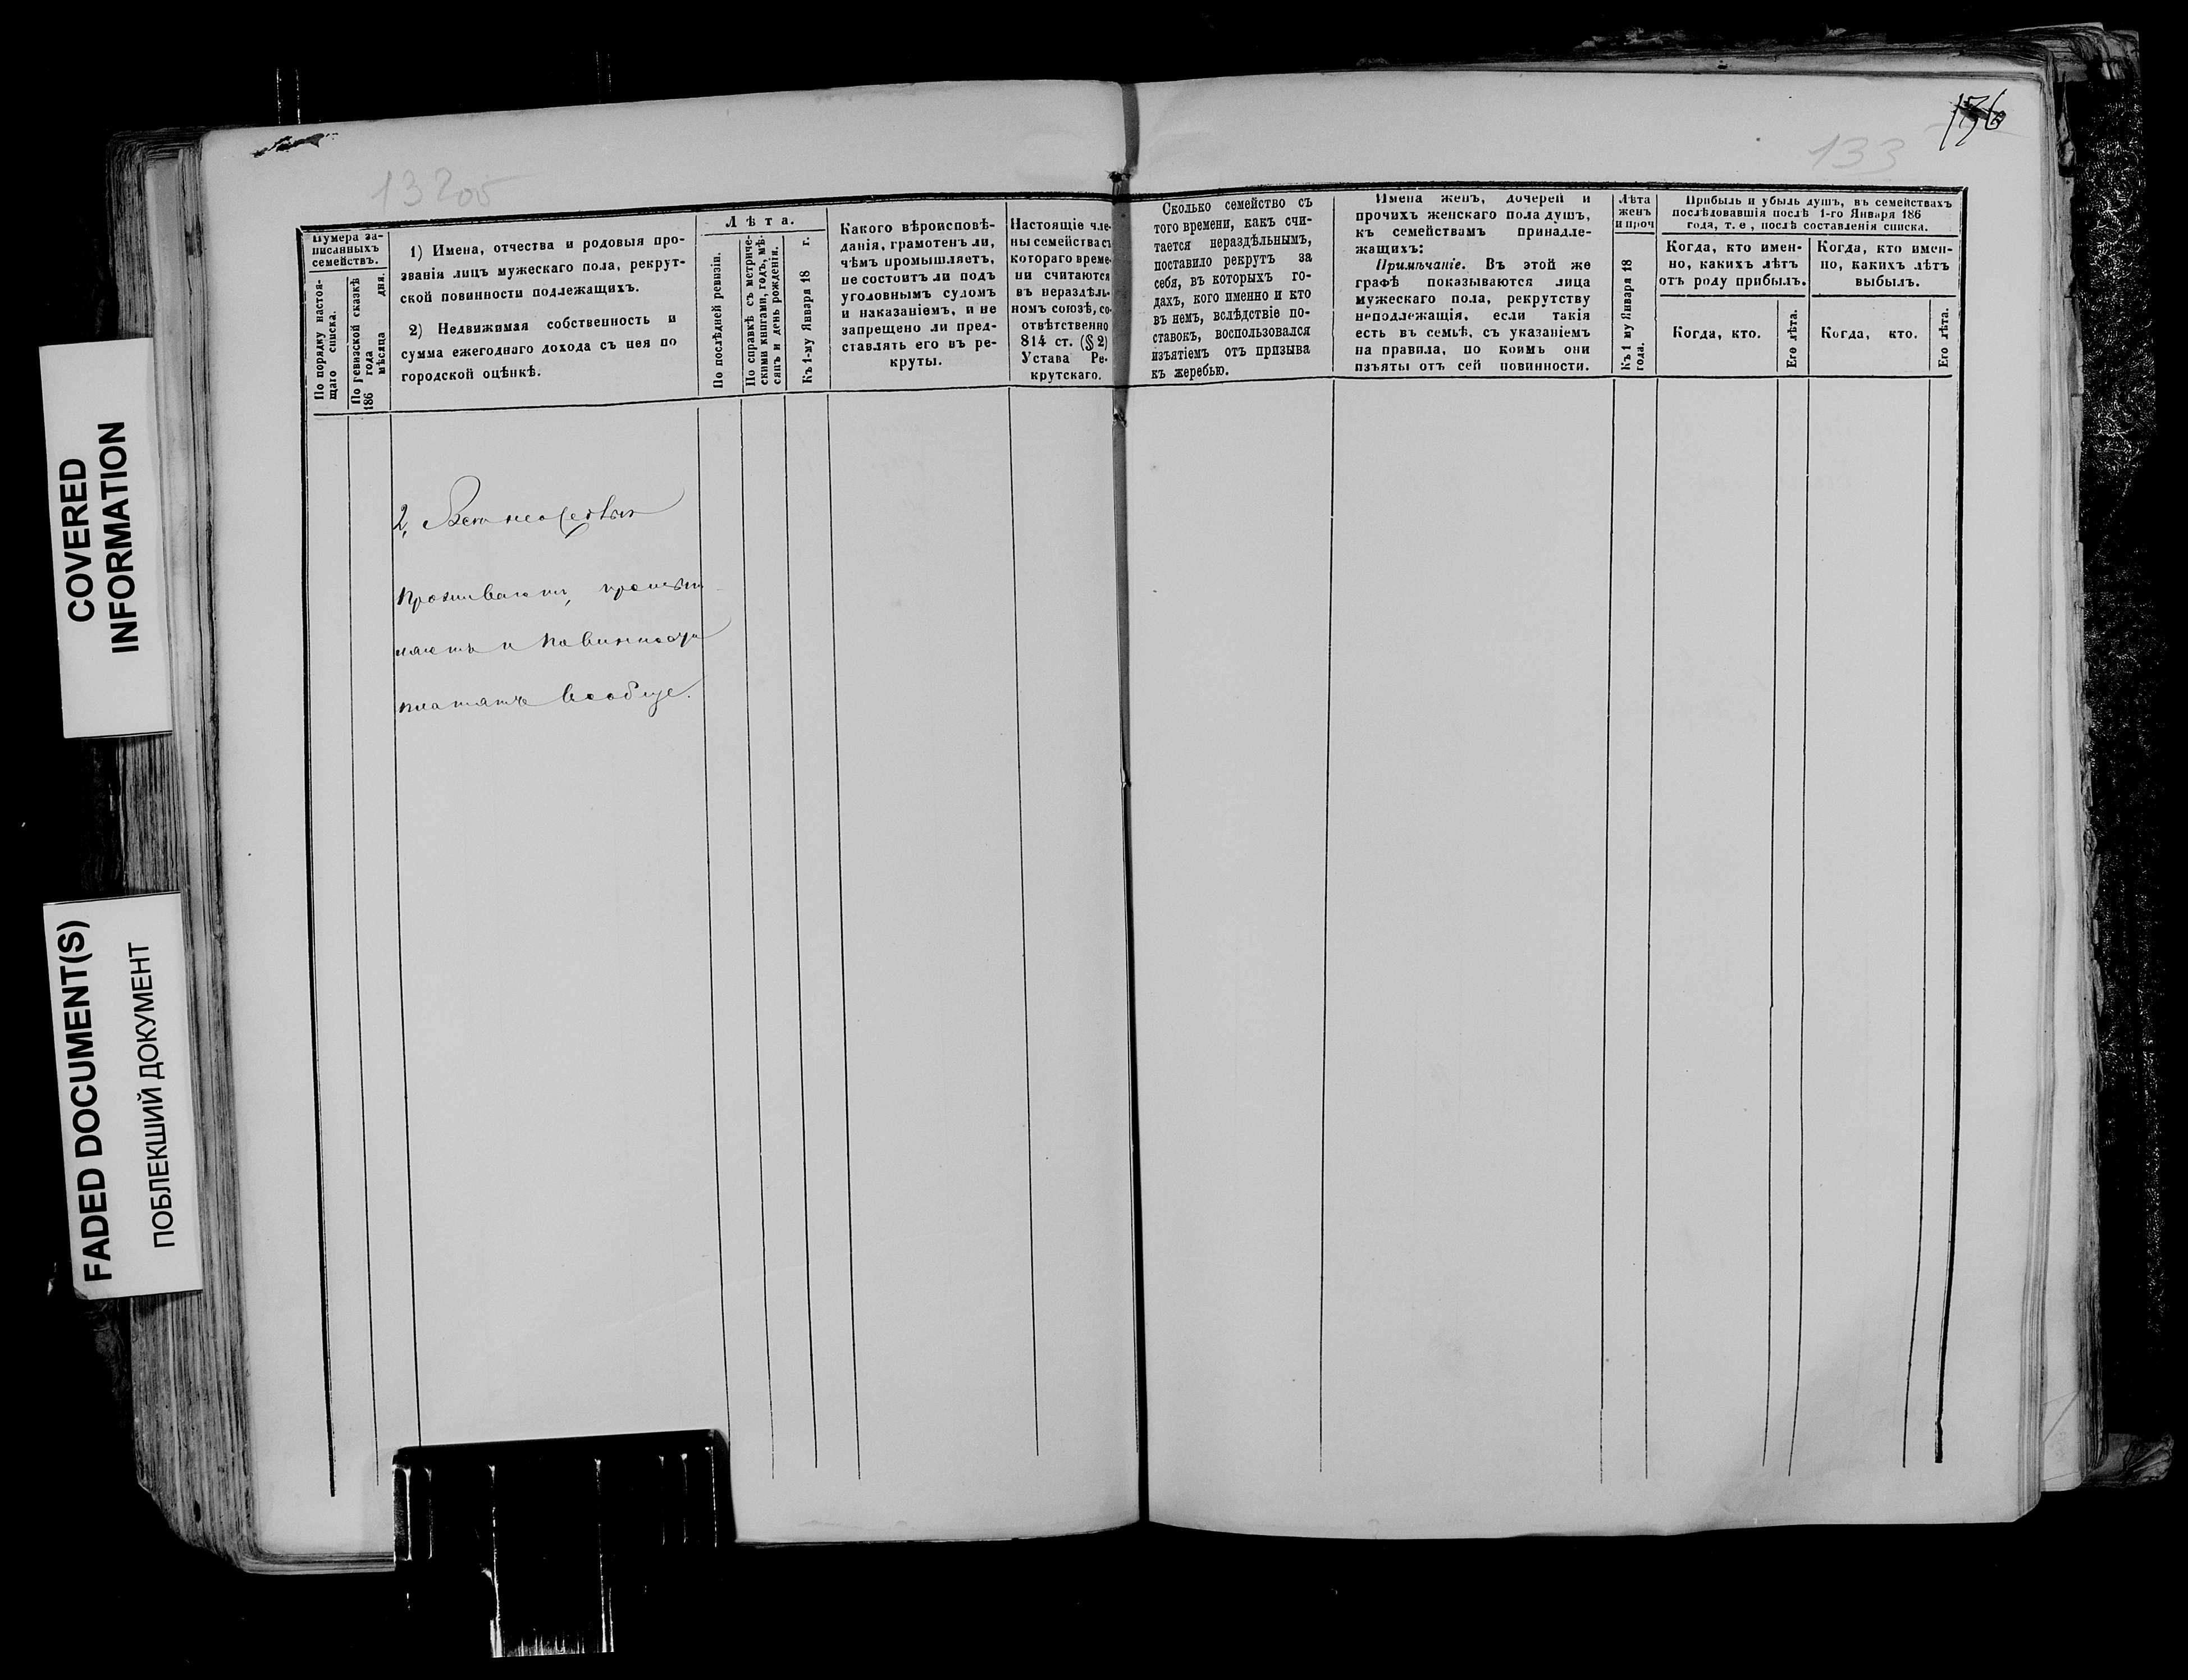 136
133
132об
Нумера за-
писанныхъ
семействъ.
По порядку настоя-
щаго списка.
По ревизской сказкѣ
186 года
мѣсяца дня.
1) Имена, отчества и родовыя про-
званія лицъ мужескаго пола, рекрут-
ской повинности подлежащихъ.
2) Недвижимая собственность и
сумма ежегоднаго дохода съ нея по
городской оцѣнкѣ.
Лѣта.
По послѣдней ревизіи.
По справкѣ съ метриче-
скими книгами, годъ, мѣ-
сяцъ и день рожденія.
Къ 1-му Января 18 г.
Какого вѣроисповѣ-
данія, грамотенъ ли,
чѣмъ промышляетъ,
не состоитъ ли подъ
уголовнымъ судомъ
и наказаніемъ, и не
запрещено ли пред-
ставлять его въ ре-
круты.
Настоящіе чле-
ны семейства съ
котораго време-
ни считаются
въ нераздѣль-
номъ союзѣ, со-
отвѣтственно
814 ст. (§ 2)
Устава Ре-
крутскаго.
Сколько семейство съ
того времени, какъ счи-
тается нераздѣльнымъ,
поставило рекрутъ за
себя, въ которыхъ го-
дахъ, кого именно и кто
въ немъ, вслѣдствіе по-
ставокъ, воспользовался
изъятіемъ отъ призыва
къ жеребью.
Имена женъ, дочерей и
прочихъ женскаго пола душъ,
къ семействамъ принадле-
жащихъ:
Примѣчаніе. Въ этой же
графѣ показываются лица
мужескаго пола, рекрутству
неподлежащія, если такія
есть въ семьѣ, съ указаніемъ
на правила, по коимъ они
изъяты отъ сей повинности.
Лѣта
женъ
и проч
Къ 1 му Января 18
года.
Прибыль и убыль душъ, въ семействахъ
послѣдовавшія послѣ 1-го Января 186
года, т. е, послѣ составленія списка.
Когда, кто имен-
но, какихъ лѣтъ
отъ роду прибылъ.
Когда, кто имен-
но, какихъ лѣтъ
выбылъ.
Когда, кто.
Его лѣта.
Когда, кто.
Его лѣта.
2,
Проживаютъ, промыш-
ляютъ и повинности
платятъ вообще.
COVERED
INFORMATION
FADED DOCUMENT(S)
ПОБЛЕКШИЙ ДОКУМЕНТ